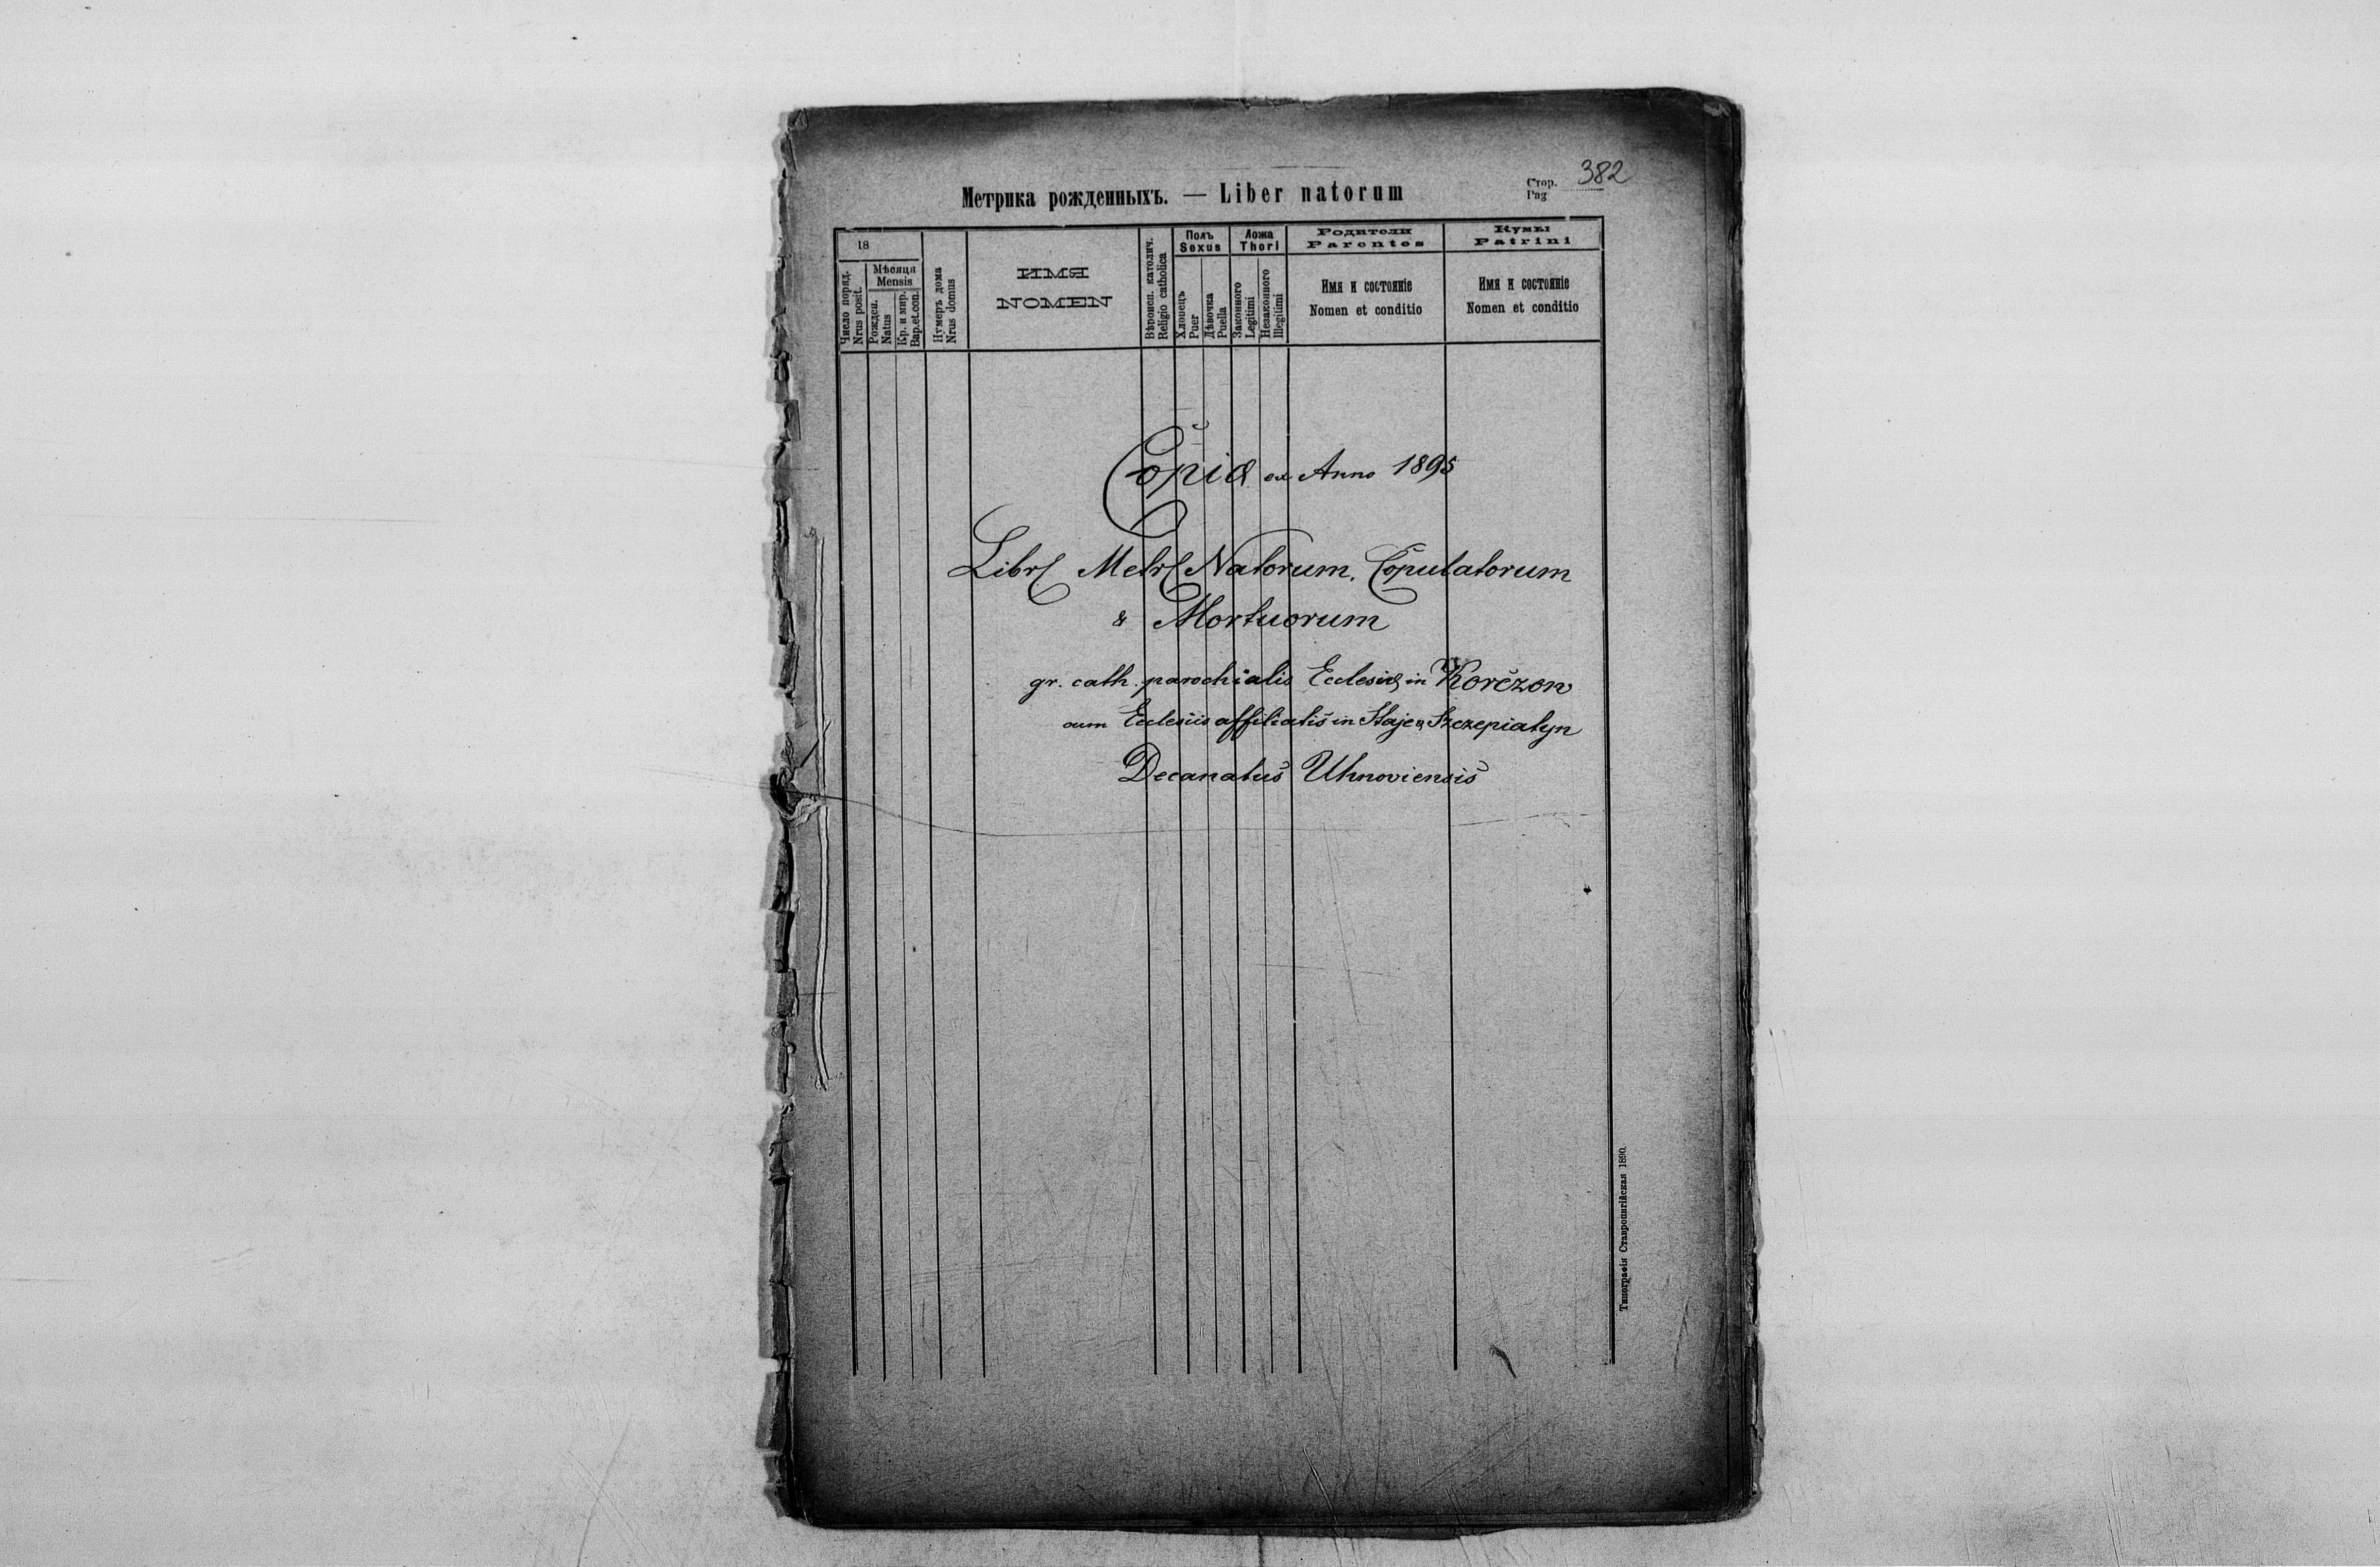 382
Стор.
Pag
Метрика рожденныхъ. — Liber natorum
18
Число поряд.
Nrus posit.
Мѣсяця
Mensis
Рожден.
Natus
Кр. и мир.
Bap.et.con.
Нумеръ дома
Nrus domus
ИМЯ
NOMEN
Вѣроисп. католич.
Religio catholica
Полъ
Sexus
Хлопець
Puer
Дѣвочка
Puella
Ложа
Thori
Законного
Legitimi
Незаконного
Illegitimi
Родители
Parentes
Имя и состоянiе
Nomen et conditio
Кумы
Patrini
Имя и состоянiе
Nomen et conditio
Copia ex Anno 1895
Libr Metr Natorum, Copulatorum
& Mortuorum
gr. cath. parochialis Ecclesiae in Korczow
cum Ecclesiis affiliatis in Staje & Szczepiatyn
Decanatus Uhnoviensis
Типографiя Ставропигiйская 1890.